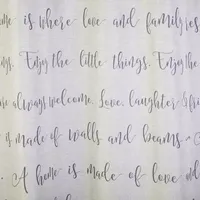 home is where love and family res
ngs. Enjoy the little things. Enjoy the
are always welcome. Love, laughter & fri
is made of walls and beams
A home is made of love and